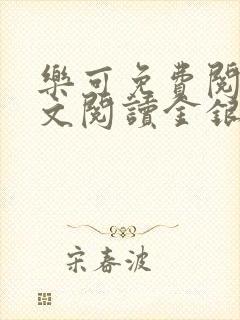 樂可免費閱
文閱讀金銀
宋春波